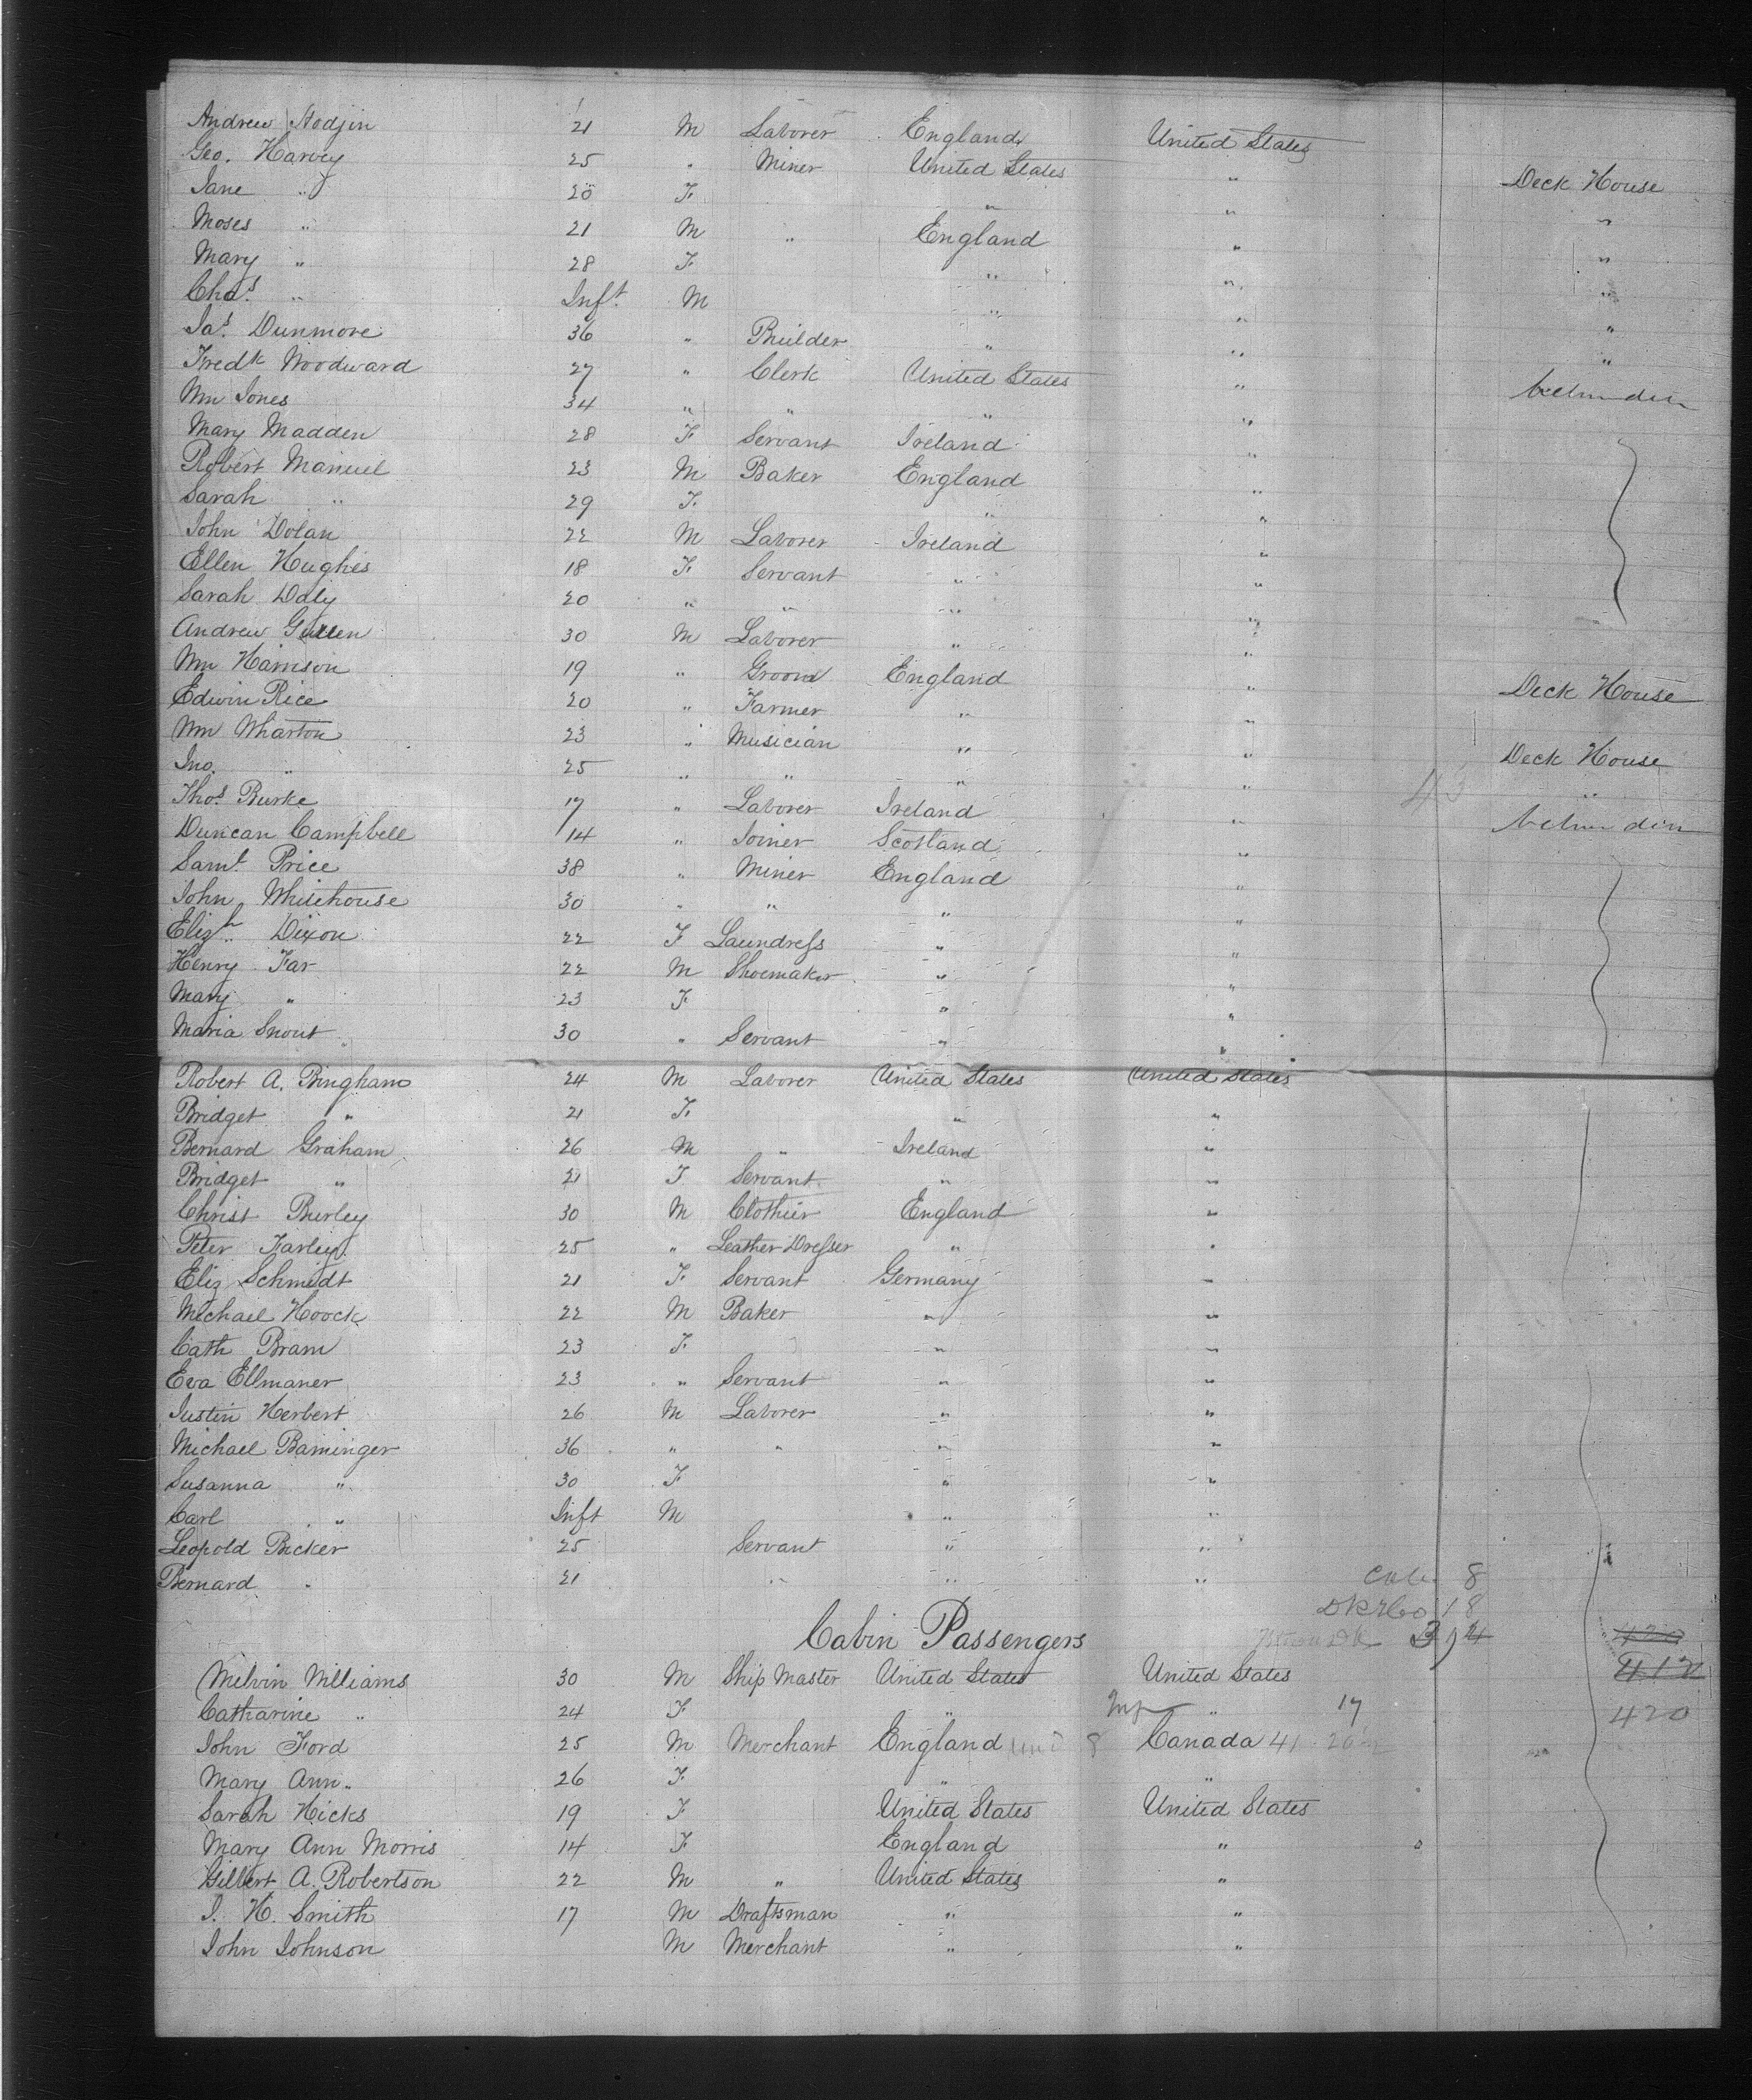 Andrew Hodgin 21 M Laborer England United States
Geo. Harvey 25 " Miner United States " Deck House
Jane " 20 F " " "
Moses " 21 M " England " "
Mary " 28 F " " "
Chas. " Inft. M " " "
Jas. Dunmore 36 " Builder " " "
Fredk Woodward 27 " Clerk United States "
Wm Jones 34 " " " "
Mary Madden 28 F Servant Ireland "
Robert Manuel 23 M Baker England "
Sarah " 29 F " "
John Dolan 22 M Laborer Ireland "
Ellen Hughes 18 F Servant " "
Sarah Daly 20 " " " "
Andrew 30 M Laborer " "
Wm Harrison 19 " Groom England " Deck House
Edwin Rice 20 " Farmer " "
Wm Wharton 23 " Musician " " Deck House
Jno. " 25 " " " " "
Thos. Burke 17 " Laborer Ireland "
Duncan Campbell 14 " Joiner Scotland "
Saml. Price 38 " Miner England "
John Whitehouse 30 " " " "
Elizh. Dixon 22 F Laundress " "
Henry Far 22 M Shoemaker " "
Mary " 23 F " "
Maria Snout 30 " Servant " "
Robert A. Bingham 24 M Laborer United States United States
Bridget " 21 F " "
Bernard Graham 26 M " Ireland "
Bridget " 21 F Servant " "
Christ Burley 30 M Clothier England "
Peter Farley 25 " Leather Dresser " "
Eliz Schmidt 21 F Servant Germany "
Michael Hoock 22 M Baker " "
Cath Bram 23 F " "
Eva Ellmaner 23 " Servant " "
Justin Herbert 26 M Laborer " "
Michael Baminger 36 " " " "
Susanna " 30 F " "
Carl " Inft M " "
Leopold Bicker 25 Servant " "
Bernard " 21 " " " 8
18
Cabin Passengers
Melvin Williams 30 M Ship Master United States United States 412
Catharine " 24 F " " 17 420
John Ford 25 M Merchant England 8 Canada 41
Mary Ann " 26 F " "
Sarah Hicks 19 F United States United States
Mary Ann Morris 14 F England "
Gilbert A. Robertson 22 M " United States "
J. H. Smith 17 M Draftsman " "
John Johnson M Merchant " "